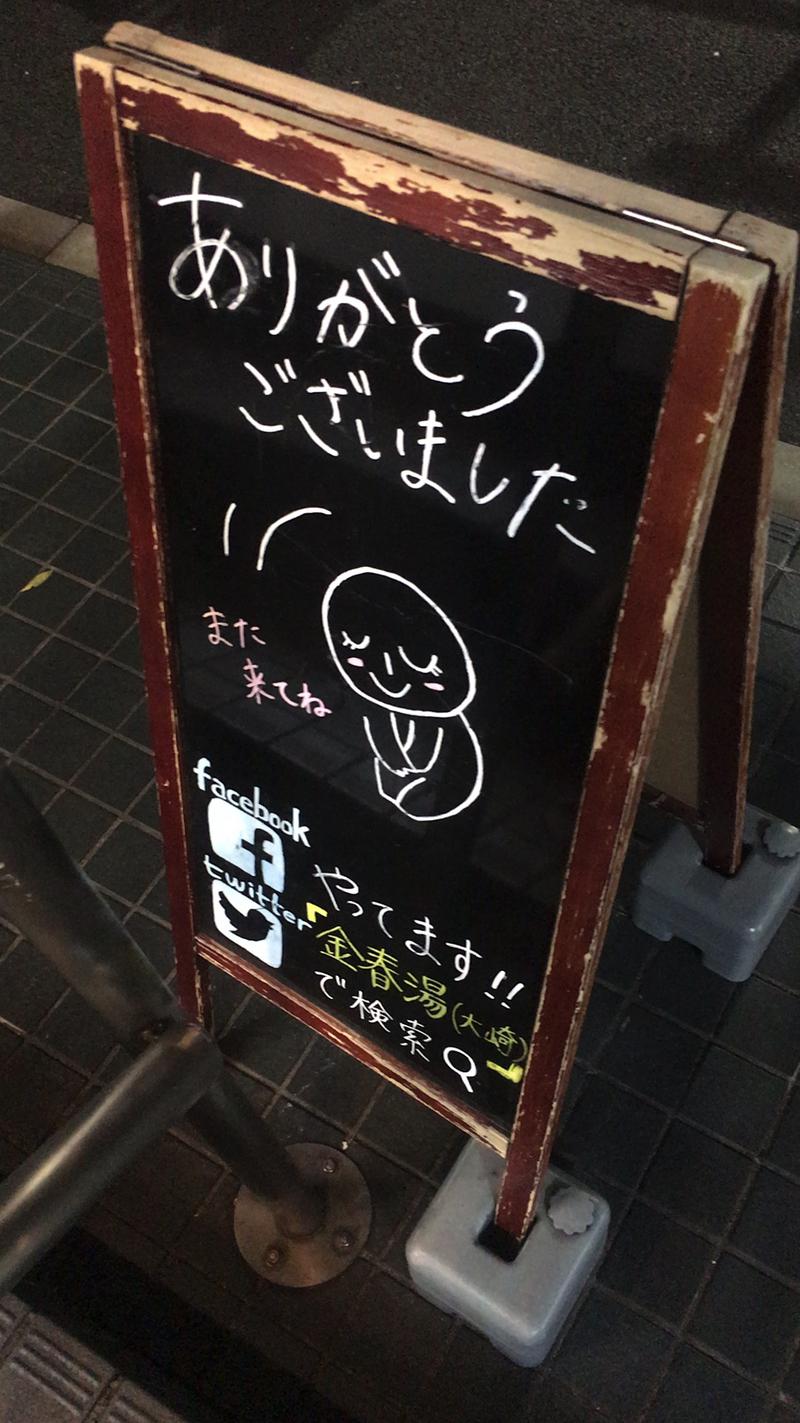 ありがとう
ございました
また
来てね
facebook
twitter
やってます!!
「金春湯(大崎)」
で検索